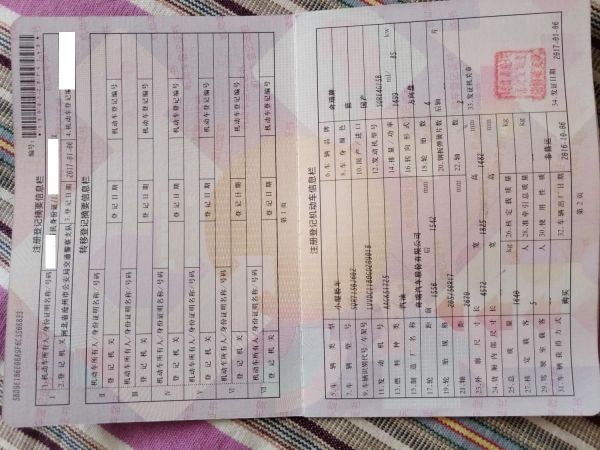 注册登记摘要信息栏
编号:
Ⅰ
1.机动车所有人/身份证明名称/号码
/居民身份证/
2.登记机关
河北省沧州市公安局交通警察支队
3.登记日期
2017-01-06
4.机动车登记编号
转移登记摘要信息栏
Ⅱ
机动车所有人/身份证明名称/号码
登记机关
登记日期
机动车登记编号
Ⅲ
机动车所有人/身份证明名称/号码
登记机关
登记日期
机动车登记编号
Ⅳ
机动车所有人/身份证明名称/号码
登记机关
登记日期
机动车登记编号
Ⅴ
机动车所有人/身份证明名称/号码
登记机关
登记日期
机动车登记编号
Ⅵ
机动车所有人/身份证明名称/号码
登记机关
登记日期
机动车登记编号
Ⅶ
机动车所有人/身份证明名称/号码
登记机关
登记日期
机动车登记编号
第1页
注册登记机动车信息栏
5.车辆类型 小型轿车
6.车辆品牌 奇瑞牌
7.车辆型号
8.车身颜色 蓝
9.车辆识别代号/车架号
10.国产/进口 国产
11.发动机号
12.发动机型号
13.燃料种类 汽油
14.排量/功率 ml/ 85 kw
15.制造厂名称 奇瑞汽车股份有限公司
16.转向形式 方向盘
17.轮距 前 后 1542 mm
18.轮胎数 4
19.轮胎规格 205/
20.钢板弹簧片数 后轴
21.轴距 mm
22.轴数 2
23.外廓尺寸 长 4572 宽 1825 高 1482 mm
33.发证机关章
24.货厢内部尺寸 长 宽 高 mm
25.总质量 kg
26.核定载质量 kg
27.核定载客 5 人
28.准牵引总质量 kg
29.驾驶室载客 人
30.使用性质 非营运
31.车辆获得方式 购买
32.车辆出厂日期 2016-10-06
34.发证日期 2017-01-06
第2页